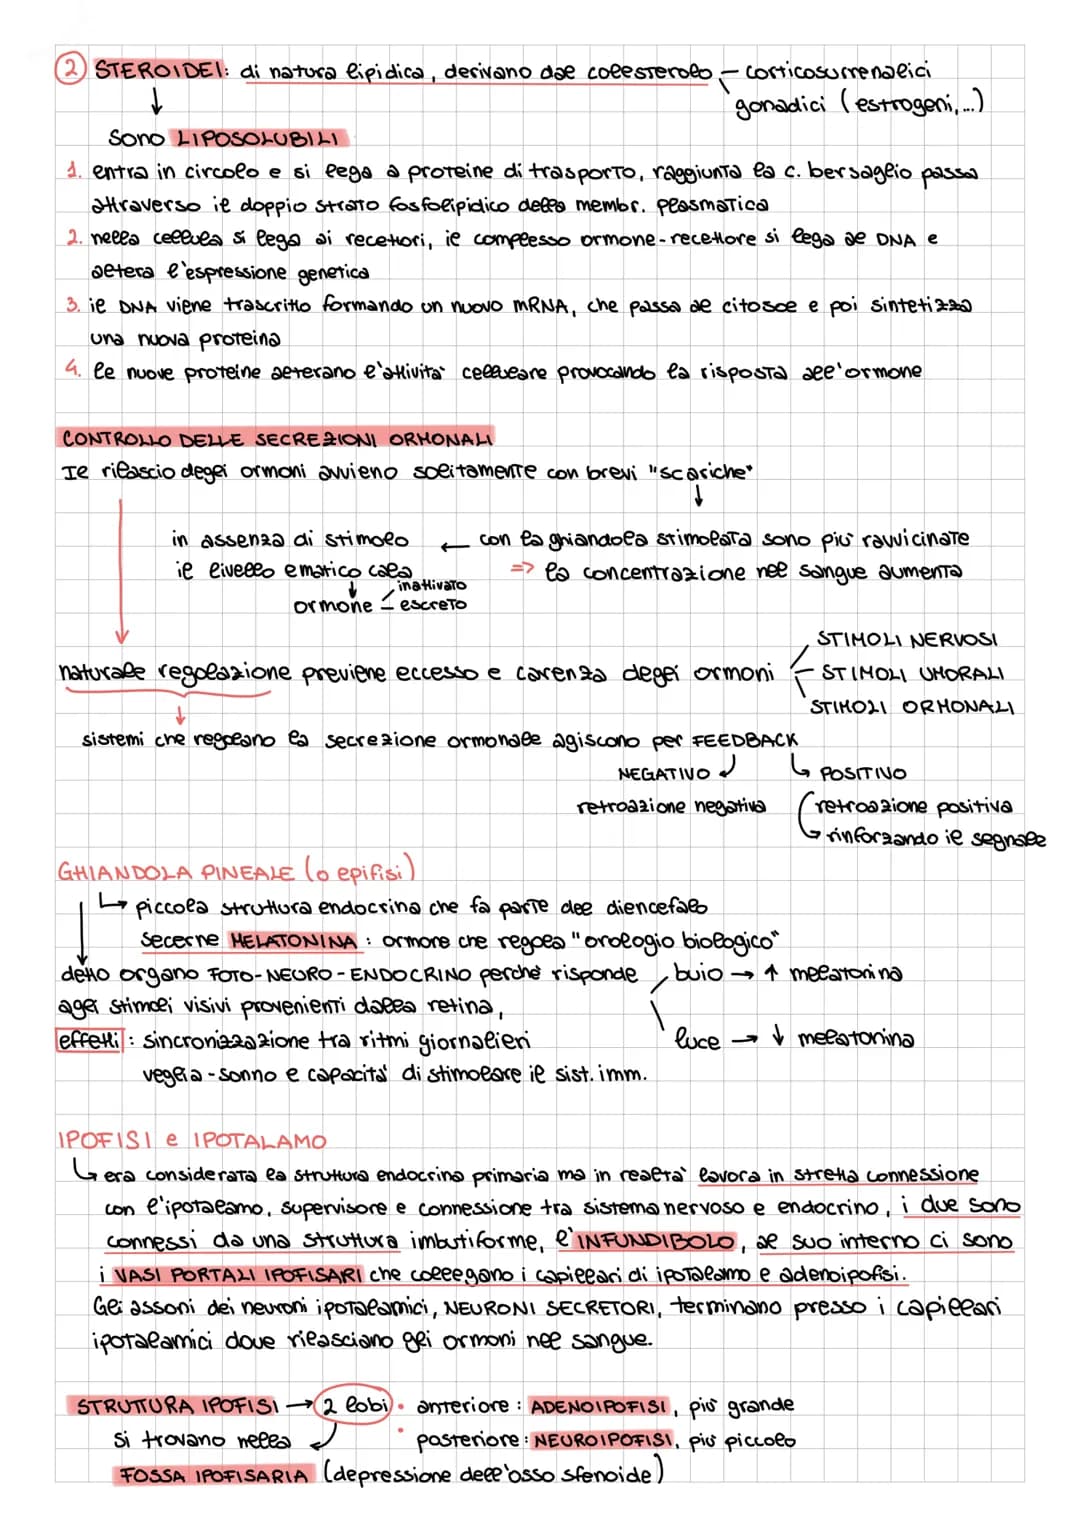 2 STEROIDEI: di natura lipidica, derivano dal colesterolo – corticosurrenalici
gonadici (estrogeni,...)
↓
sono LIPOSOLUBILI
1. entra in circolo e si lega a proteine di trasporto, raggiunta la c. bersaglio passa
attraverso il doppio strato fosfolipidico della membr. plasmatica
2. nella cellula si lega ai recettori, il complesso ormone-recettore si lega al DNA e
altera l'espressione genetica
3. il DNA viene trascritto formando un nuovo mRNA, che passa al citosol e poi sintetizza
una nuova proteina
4. le nuove proteine alterano l'attività cellulare provocando la risposta all'ormone
CONTROLLO DELLE SECREZIONI ORMONALI
Il rilascio degli ormoni avvieno solitamente con brevi "scariche"
↓
in assenza di stimolo ← con la ghiandola stimolata sono più ravvicinate
il livello ematico cala => la concentrazione nel sangue aumenta
↓ inattivato
ormone – escreto
STIMOLI NERVOSI
naturale regolazione previene eccesso e carenza degli ormoni – STIMOLI UMORALI
STIMOLI ORMONALI
↓
sistemi che regolano la secrezione ormonale agiscono per FEEDBACK
NEGATIVO ↲ ↳ POSITIVO
retroazione negativa retroazione positiva
→ rinforzando il segnale
GHIANDOLA PINEALE (o epifisi)
↳ piccola struttura endocrina che fa parte del diencefalo
secerne MELATONINA : ormone che regola "orologio biologico"
detto organo FOTO-NEURO-ENDOCRINO perchè risponde buio → ↑ melatonina
agli stimoli visivi provenienti dalla retina,
effetti : sincronizzazione tra ritmi giornalieri luce → ↓ melatonina
veglia-sonno e capacità di stimolare il sist. imm.
IPOFISI e IPOTALAMO
↳ era considerata la struttura endocrina primaria ma in realtà lavora in stretta connessione
con l'ipotalamo, supervisore e connessione tra sistema nervoso e endocrino, i due sono
connessi da una struttura imbutiforme, l'INFUNDIBOLO, al suo interno ci sono
i VASI PORTALI IPOFISARI che collegano i capillari di ipotalamo e adenoipofisi.
Gli assoni dei neuroni ipotalamici, NEURONI SECRETORI, terminano presso i capillari
ipotalamici dove rilasciano gli ormoni nel sangue.
STRUTTURA IPOFISI → 2 lobi • anteriore : ADENOIPOFISI, più grande
si trovano nella • posteriore : NEUROIPOFISI, più piccolo
FOSSA IPOFISARIA (depressione dell'osso sfenoide)